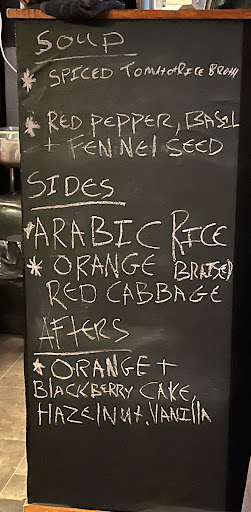 SOUP
* SPICED TOMATO+RICE BROTH
* RED PEPPER, BASIL
+ FENNEl SEED
SIDES
* ARABIC RICE
* ORANGE BRAISED
RED CABBAGE
AFTERS
* ORANGE +
BlACKBERRY CAKE,
HAZElNUt, VANIllA